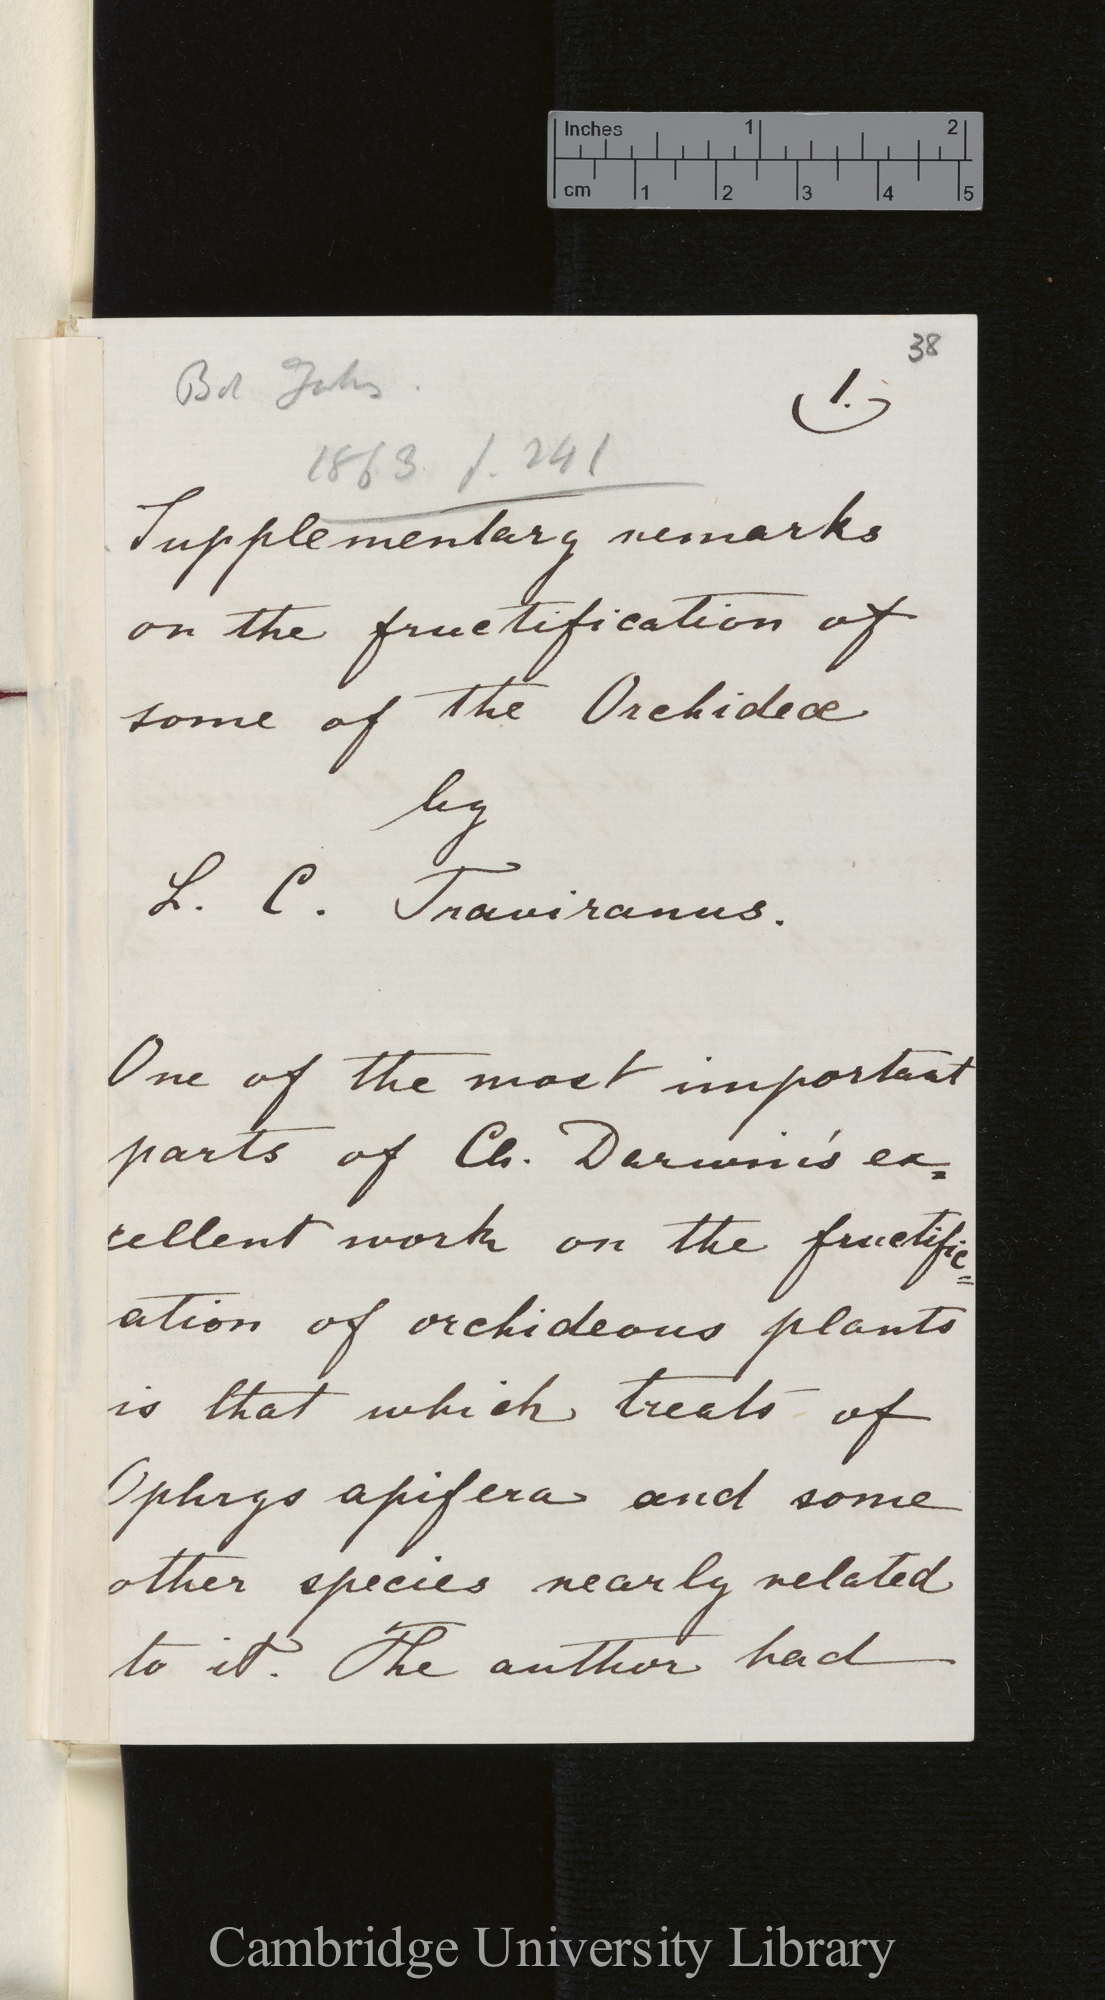 Inches 1 2
cm 1 2 3 4 5
38
1.
Bot
1863 p. 241
Supplementary remarks
on the fructification of
some of the Orchideæ
by
L. C. Traviranus.
One of the most important
parts of Ch. Darwin's ex=
cellent work on the fructific=
ation of orchideous plants
is that which treats of
Ophrys apifera and some
other species nearly related
to it. The author had
Cambridge University Library